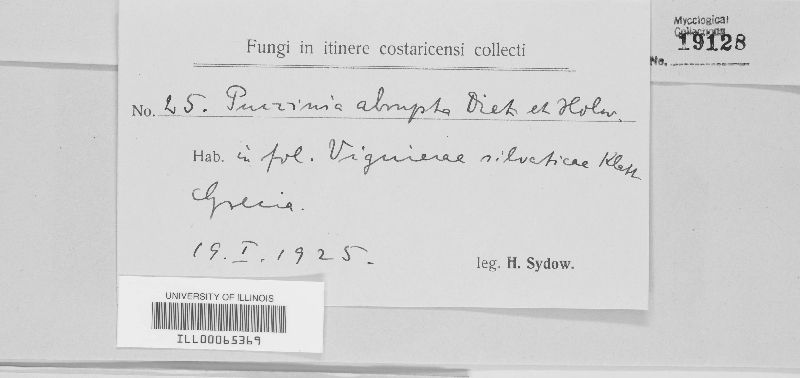 Mycological
Collections
19128
No.
Fungi in itinere costaricensi collecti
No. 25. Puccinia abrupta Diet. et Holw.
Hab. in fol. Viguierae silvaticae Klatt
Grecia.
19. I. 1925.
leg. H. Sydow.
UNIVERSITY OF ILLINOIS
ILL00065369